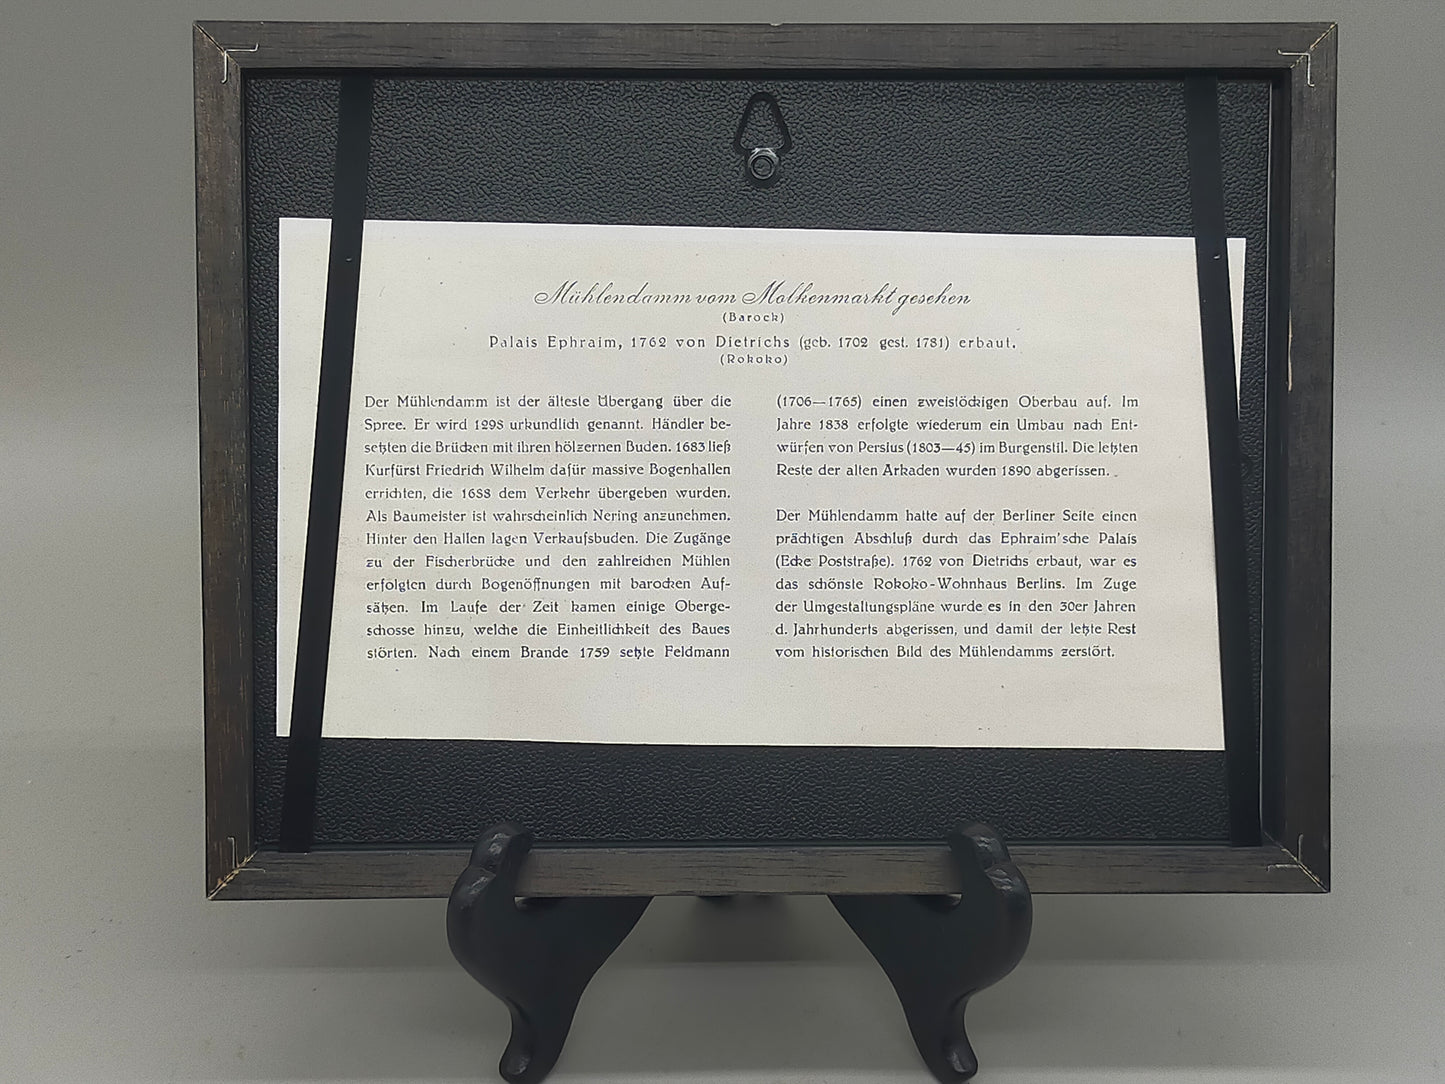 Mühlendamm vom Molkenmarkt gesehen
(Barock)
Palais Ephraim, 1762 von Dietrichs (geb. 1702 gest. 1781) erbaut.
(Rokoko)
Der Mühlendamm ist der älteste Übergang über die
Spree. Er wird 1298 urkundlich genannt. Händler be-
setzten die Brücken mit ihren hölzernen Buden. 1683 ließ
Kurfürst Friedrich Wilhelm dafür massive Bogenhallen
errichten, die 1688 dem Verkehr übergeben wurden.
Als Baumeister ist wahrscheinlich Nering anzunehmen.
Hinter den Hallen lagen Verkaufsbuden. Die Zugänge
zu der Fischerbrücke und den zahlreichen Mühlen
erfolgten durch Bogenöffnungen mit barocken Auf-
sätzen. Im Laufe der Zeit kamen einige Oberge-
schosse hinzu, welche die Einheitlichkeit des Baues
störten. Nach einem Brande 1759 setzte Feldmann
(1706—1765) einen zweistöckigen Oberbau auf. Im
Jahre 1838 erfolgte wiederum ein Umbau nach Ent-
würfen von Persius (1803—45) im Burgenstil. Die letzten
Reste der alten Arkaden wurden 1890 abgerissen.
Der Mühlendamm hatte auf der Berliner Seite einen
prächtigen Abschluß durch das Ephraim'sche Palais
(Ecke Poststraße). 1762 von Dietrichs erbaut, war es
das schönste Rokoko-Wohnhaus Berlins. Im Zuge
der Umgestaltungspläne wurde es in den 30er Jahren
d. Jahrhunderts abgerissen, und damit der letzte Rest
vom historischen Bild des Mühlendamms zerstört.